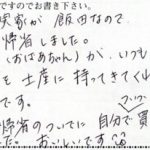 ですのでお書き下さい。
実家が飯田なので、
帰省しました。
(おばあちゃん)が、いつも
お土産に持ってきてく
です。
帰省のついでに自分で買
た。おいしいです